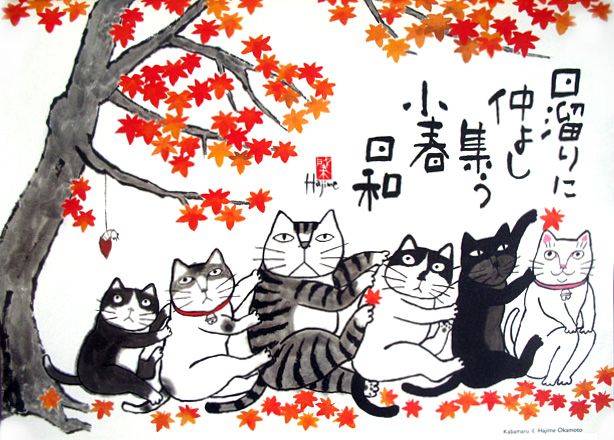 日溜りに
仲よし
集う
小春
日和
Hajime
Kabamaru © Hajime Okamoto